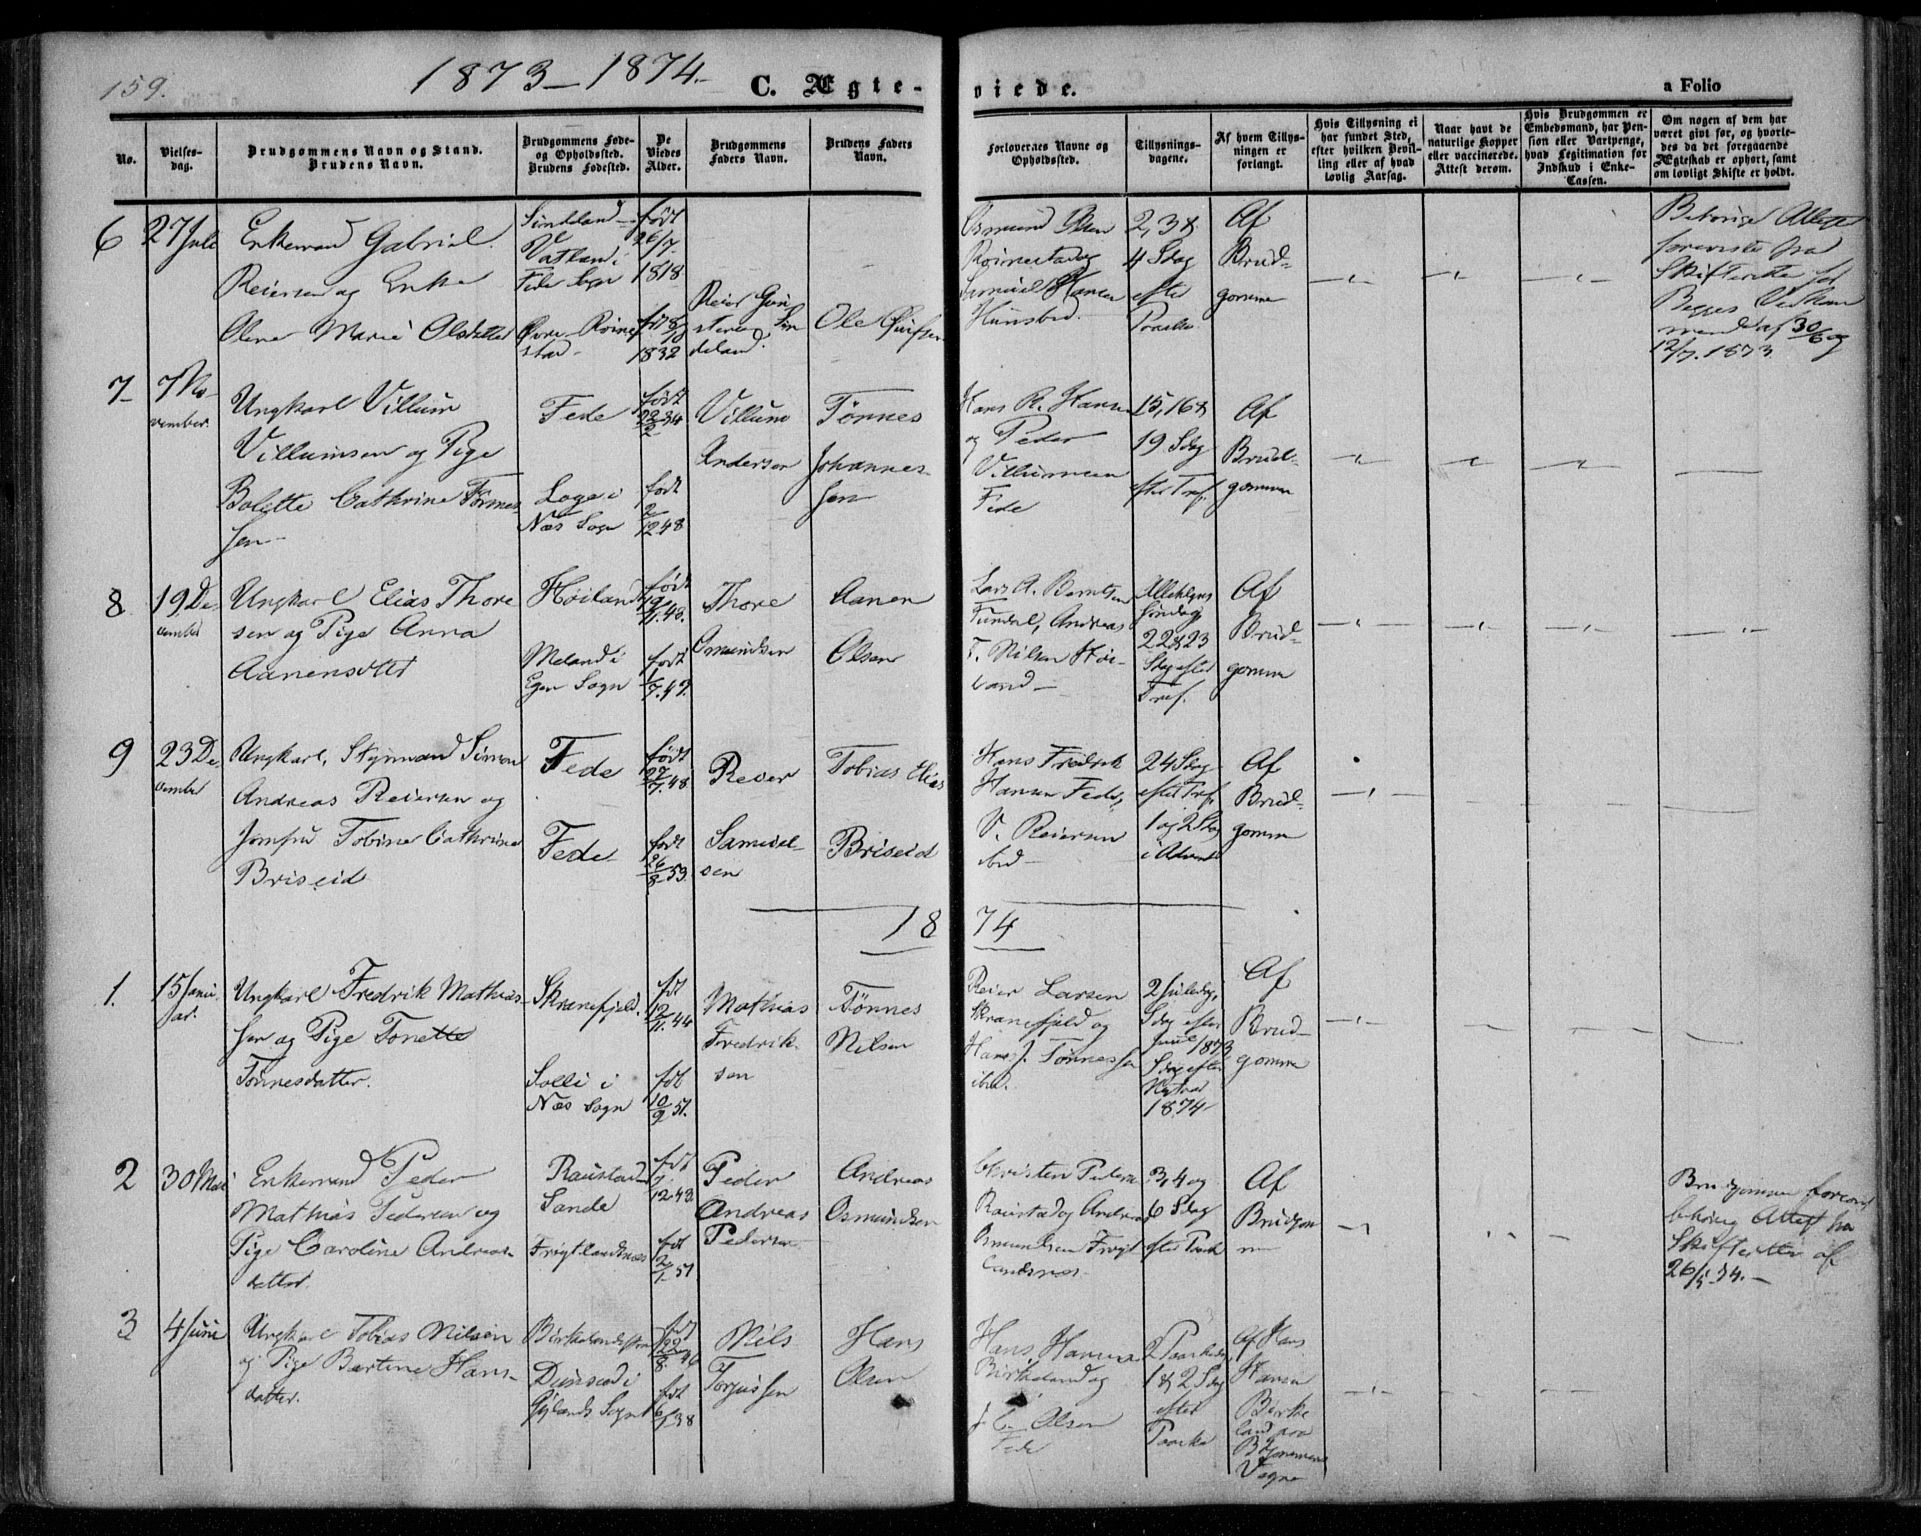 159.
1873-1874.
C. Ægte-
viede.
a Folio
No.
Vielses-
dag.
Brudgommens Navn og Stand.
Brudens Navn.
Brudgommens Føde-
og Opholdssted.
Brudens Fødested.
De
Viedes
Alder.
Brudgommens
Faders Navn.
Brudens Faders
Navn.
Forlovernes Navne og
Opholdssted.
Tillysnings-
dagene.
Af hvem Tillys-
ningen er
forlangt.
Hvis Tillysning ei
har fundet Sted,
efter hvilken Bevil-
ling eller af hvad
lovlig Aarsag.
Naar havt de
naturlige Kopper
eller vaccinerede.
Attest derom.
Hvis Brudgommen er
Embedsmand, har Pen-
sion eller Vartpenge,
hvad Legitimation for
Indskud i Enke-
Cassen.
Om nogen af dem har
været givt før, og hvorle-
des da det foregaaende
Ægteskab er ophørt, samt
om lovligt Skifte er holdt.
6
27 Juli
Enkemand Gabriel
Reiersen og Enke
Olene Marie Olsdatter
Vatland i
Fede Sogn
Øvre Røine-
stad
født
26/7
1818
1832
Ole
Osmund Olsen
Røinestad og
Samuel Hansen
2, 3 &
4 Sdag
efter
Paaske
Af
Brud-
gomme
Behørige Attester
foreviste fra
Skifteretten for
Begges
af 30/6 og
12/7. 1873
7
7 No-
vember.
Ungkarl Villum
Villumsen og Pige
Bolette Cathrine Tønnes-
sen
Fede
Loge i
Næs Sogn
født
født
2/12 48
Villum
Andersen
Tønnes
Johannes-
sen
Hans R. Hansen
og Peder
Villumsen
Fede
15, 16 &
19 Sdag
efter Tref.
Af
Brud-
gomme
8
19 De-
cember
Ungkarl Elias Thore
sen og Pige Anna
Aanensdtt
Høiland
Meland i
Egen Sogn
født
født
1/7.49.
Thore
Osmundsen
Aanen
Olsen
Lars A. Berntsen
Andreas
T. Nilsen Høi-
land
Allehlgns
Søndag
22 & 23
Sdag efter
Tref.
Af
Brud-
gomme
9
23 De-
cember
Ungkarl, Styrmand Simon
Andreas Reiersen og
Jomfru Tobine Cathrine
Briseid
Fede
Fede
født
27/7.48
født
26/8 53.
Reier
Samuel-
sen
Tobias Elias
Briseid
Hans Fredrik
Hansen Fede,
S. Reiersen
ibid
24 Sdag
efter Tref.
1 og 2 Sdag
i Advent
Af
Brud-
gomme
1874
1.
15 Janu-
ar.
Ungkarl Fredrik Mathias-
sen og Pige Tonette
Tønnesdatter.
Skranefjeld.
Solli i
Næs Sogn
fdt
12/11.44
fdt
10/9 51.
Mathias
Fredrik-
sen
Tønnes
Nilsen
Reier Larsen
Skranefjeld og
Hans J. Tønnessen
ibid.
2 Juledag,
Sdag efter
Juul 1873
Sdag efter
Nytaar
1874
Af
Brud-
gomme
2
30 Mai
Enkemand Peder
Mathias Pedersen og
Pige Caroline Andreas-
datter.
Raustad
Sande
Frøgtlandsnæs
fdt
1/12.43.
fdt
2/1.51
Peder
Andreas
Pedersen
Andreas
Osmundsen
Christen Peters
Raustad og Andreas
Osmundsen Frøgt
landsnæs.
3, 4 og
6 Sdag
efter Paask
Af
Brudgom
m
Brudgommen foreviste
behørig Attest fra
Skifteretten af
26/5 74.
3
4 Juni
Ungkarl Tobias Nilsen
og Pige Bertine Hans-
datter.
i
Gylands Sogn
fdt
fdt
Nils
Torjussen
Hans
Olsen
Hans Hansen
Birkeland og
J. C. Olsen
Fede
2 Paaskedag
1 & 2 Sdag
efter
Paaske
Af Hans
Hansen
Birke
land paa
Brudgommens
Vegne